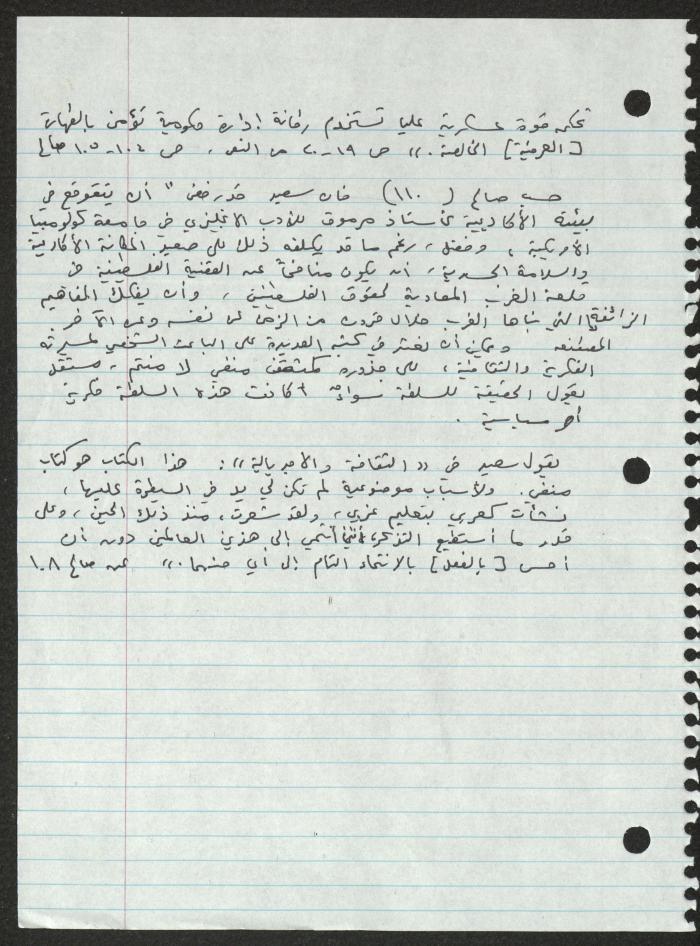 تحكمه قوة عسكرية عليا تستخدم رطانة إدارة حكومية تؤمن بالطهارة
[العرقية] الخالصة.» ص ١٩-٢٠ من النص، ص ١٠٤-١٠٥ صالح
حسب صالح (١١٠) فان سعيد قد رفض "أن يتقوقع في
بيئته الأكاديمية كأستاذ مرموق للأدب الانجليزي في جامعة كولومبيا
الأمريكية، وفضل، رغم ما قد يكلفه ذلك على صعيد المكانة الأكاديمية
والسلامة الجسدية، أن يكون منافحاً عن القضية الفلسطينية في
قلعة الغرب المعادية لحقوق الفلسطينيين، وأن يفكك المفاهيم
الزائفة التي بناها الغرب خلال قرون من الزمن عن نفسه وعن الآخر
المصطنعه ويمكن أن نعثر في كتبه العديدة على الباعث الشخصي لمسيرته
الفكرية والثقافية، على جذوره كمثقف منفي لا منتم، مستقل
يقول الحقيقة للسلطة سواءً أكانت هذه السلطة فكرية
أم سياسية.
يقول سعيد في «الثقافة والامبريالية»: هذا الكتاب هو كتاب
منفى. ولأسباب موضوعية لم تكن لي يد في السيطرة عليها،
نشأت كعربي بتعليم غربي، ولقد شعرت، منذ ذلك الحين، وعلى
قدر ما أستطيع التذكر، أنني أنتمي إلى هذين العالمين دون أن
أحس [بالفعل] بالانتماء التام إلى أي منهما.» عن صالح ١٠٨